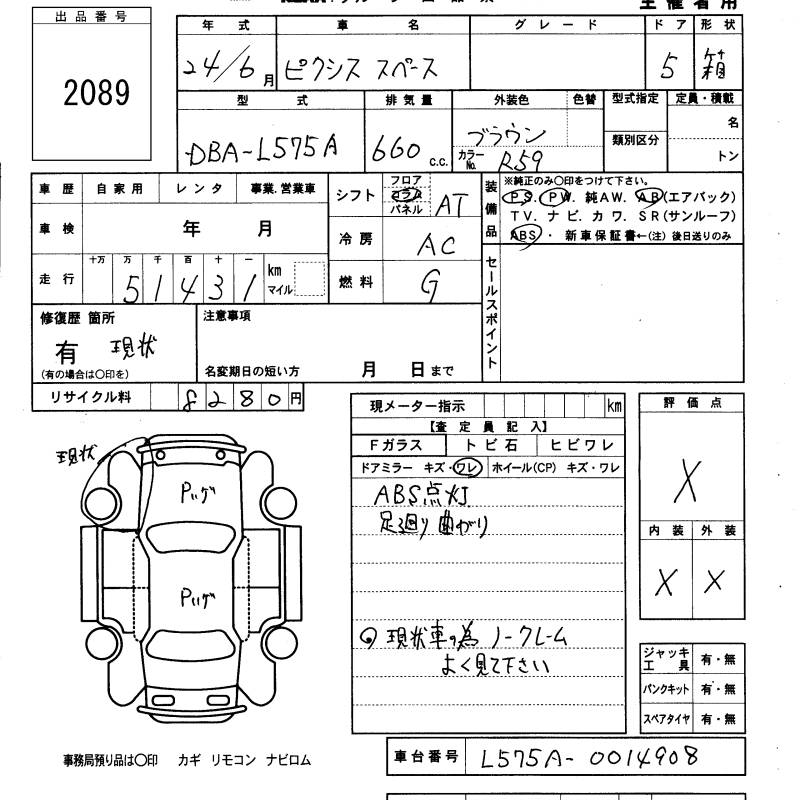 主催者用
出品番号
2089
年式 車名 グレード ドア 形状
24/6月 ピクシス スペース 5 箱
型式 排気量 外装色 色替 型式指定 定員・積載
DBA-L575A 660 c.c. ブラウン 名
カラーNo. R59 類別区分 トン
車歴 自家用 レンタ 事業.営業車
車検 年 月
走行 十万 万 千 百 十 一
51431 km マイル
シフト フロア コラム パネル AT
冷房 AC
燃料 G
装備品
※純正のみ〇印をつけて下さい。
PS. PW. 純AW. AB(エアバック)
TV. ナビ. カワ. SR(サンルーフ)
ABS・ 新車保証書←(注) 後日送りのみ
セールスポイント
修復歴 箇所
有 現状
(有の場合は〇印を)
注意事項
名変期日の短い方 月 日まで
リサイクル料 8280円
現メーター指示 km
【査定員記入】
Fガラス トビ石 ヒビワレ
ドアミラー キズ・ワレ ホイール(CP) キズ・ワレ
ABS点灯
足廻り曲がり
現状車の為 ノークレーム
よく見て下さい
評価点
X
内装 外装
X X
ジャッキ工具 有・無
パンクキット 有・無
スペアタイヤ 有・無
現状
車台番号 L575A-0014908
事務局預り品は〇印 カギ リモコン ナビロム